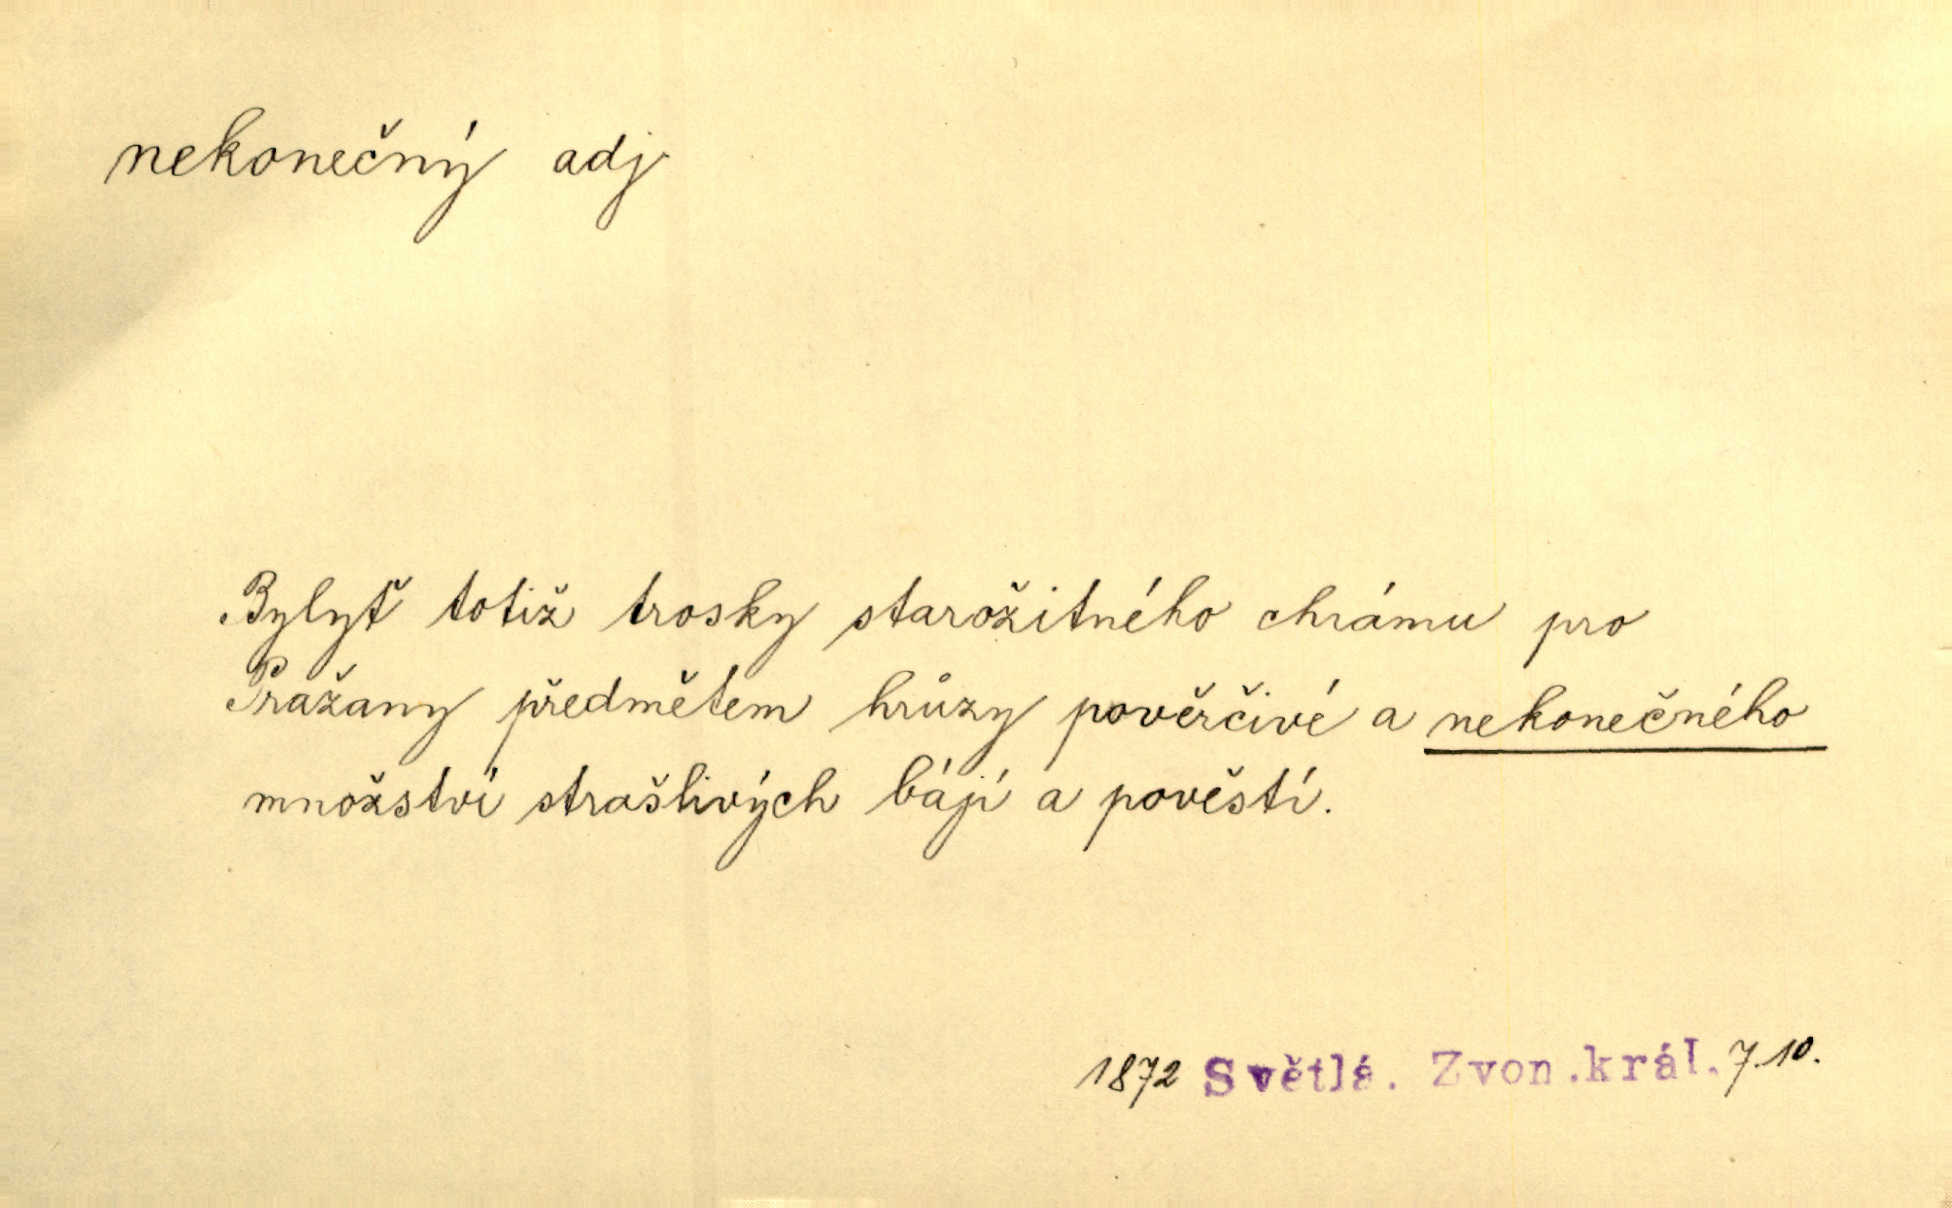 nekonečný adj.
Bylyť totiž trosky starožitného chrámu pro
Pražany předmětem hrůzy pověrčivé a nekonečného
množství strašlivých bájí a pověstí.
1872 Světlá. Zvon.král. 7.10.